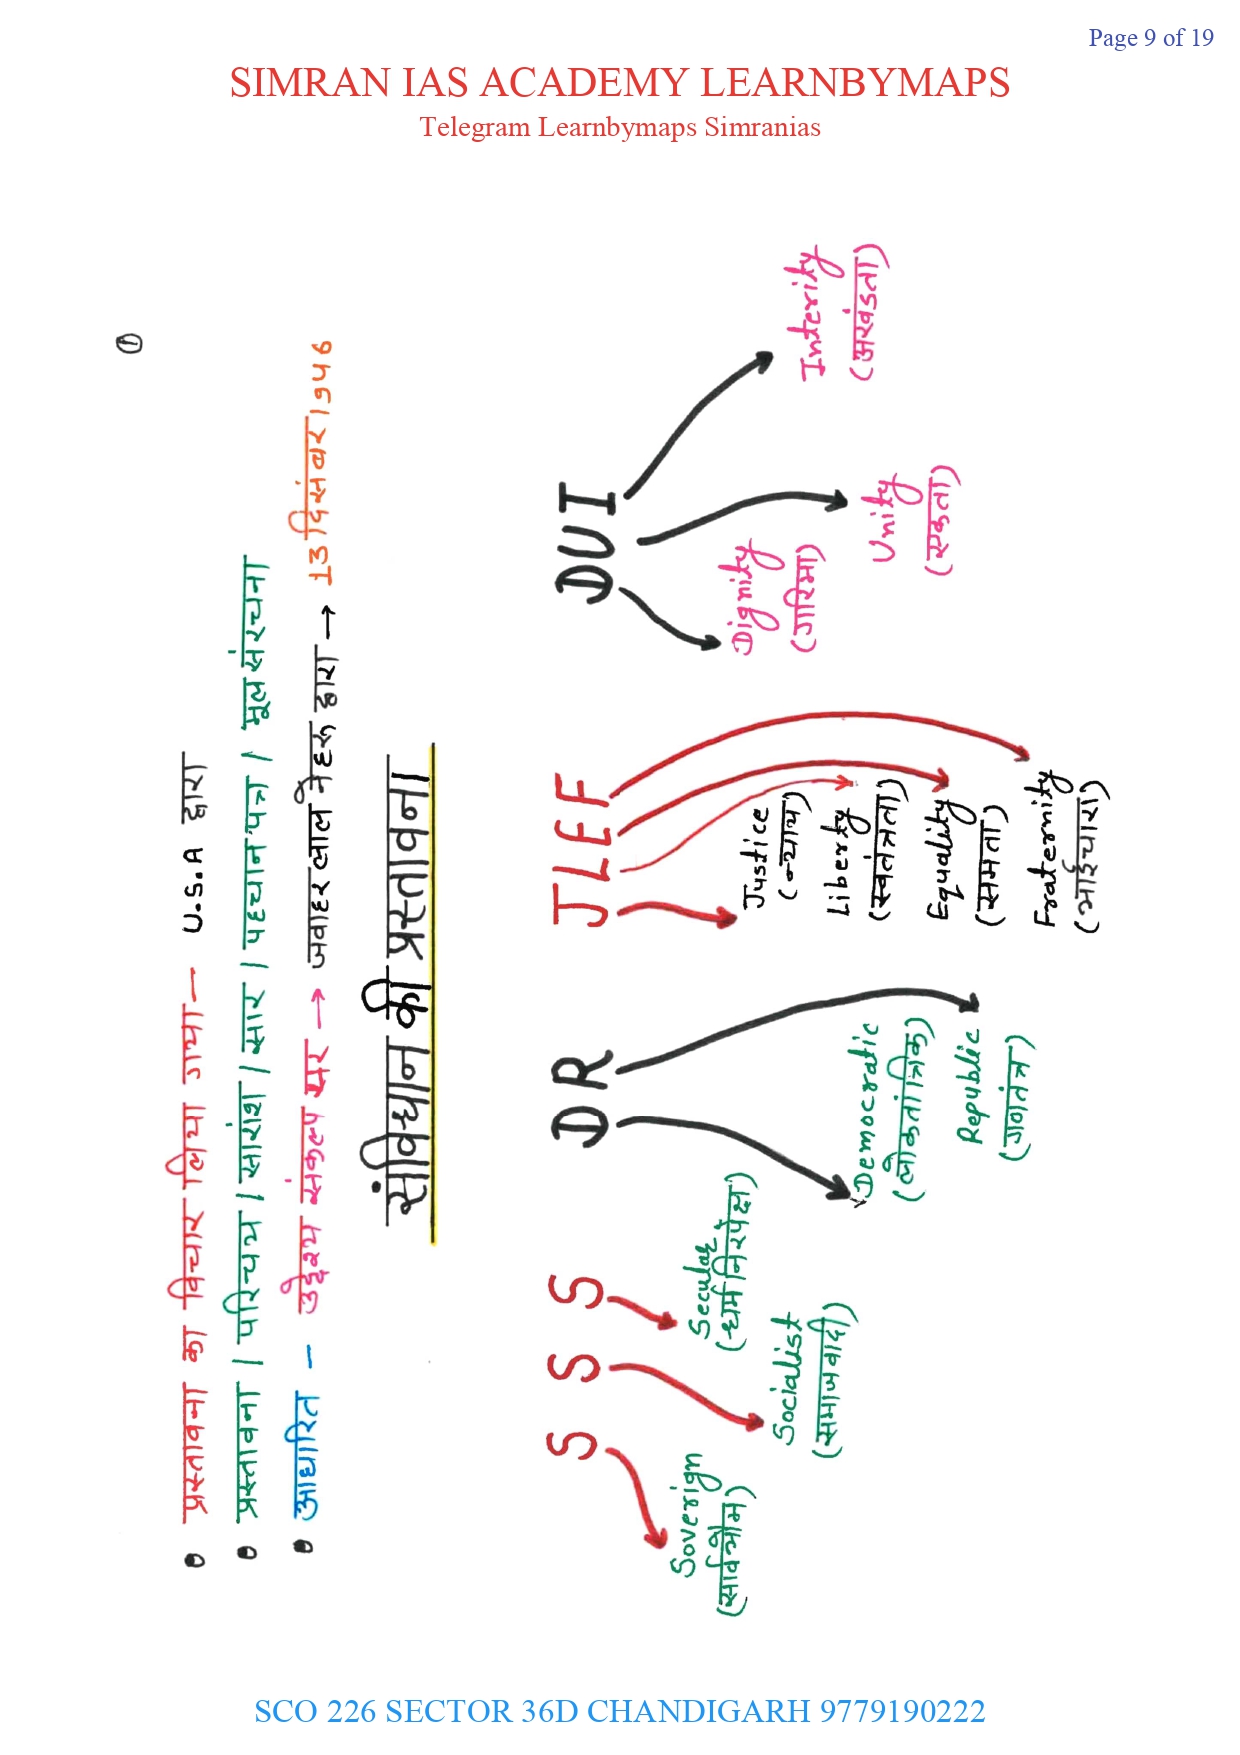 Page 9 of 19
SIMRAN IAS ACADEMY LEARNBYMAPS
Telegram Learnbymaps Simranias
①
प्रस्तावना का विचार लिया गया — U.S.A द्वारा
प्रस्तावना / परिचय / सारांश / सार / पहचान पत्र / मूल संरचना
आधारित — उद्देश्य संकल्प पर → जवाहर लाल नेहरू द्वारा → 13 दिसंबर 1946
संविधान की प्रस्तावना
S S S D R J L E F D U I
Soverign
(सार्वभौम)
Socialist
(समाजवादी)
Secular
(धर्म निरपेक्ष)
Democratic
(लोकतांत्रिक)
Republic
(गणतंत्र)
Justice
(न्याय)
Liberty
(स्वतंत्रता)
Equality
(समता)
Fraternity
(भाईचारा)
Dignity
(गरिमा)
Unity
(एकता)
Interity
(अखंडता)
SCO 226 SECTOR 36D CHANDIGARH 9779190222